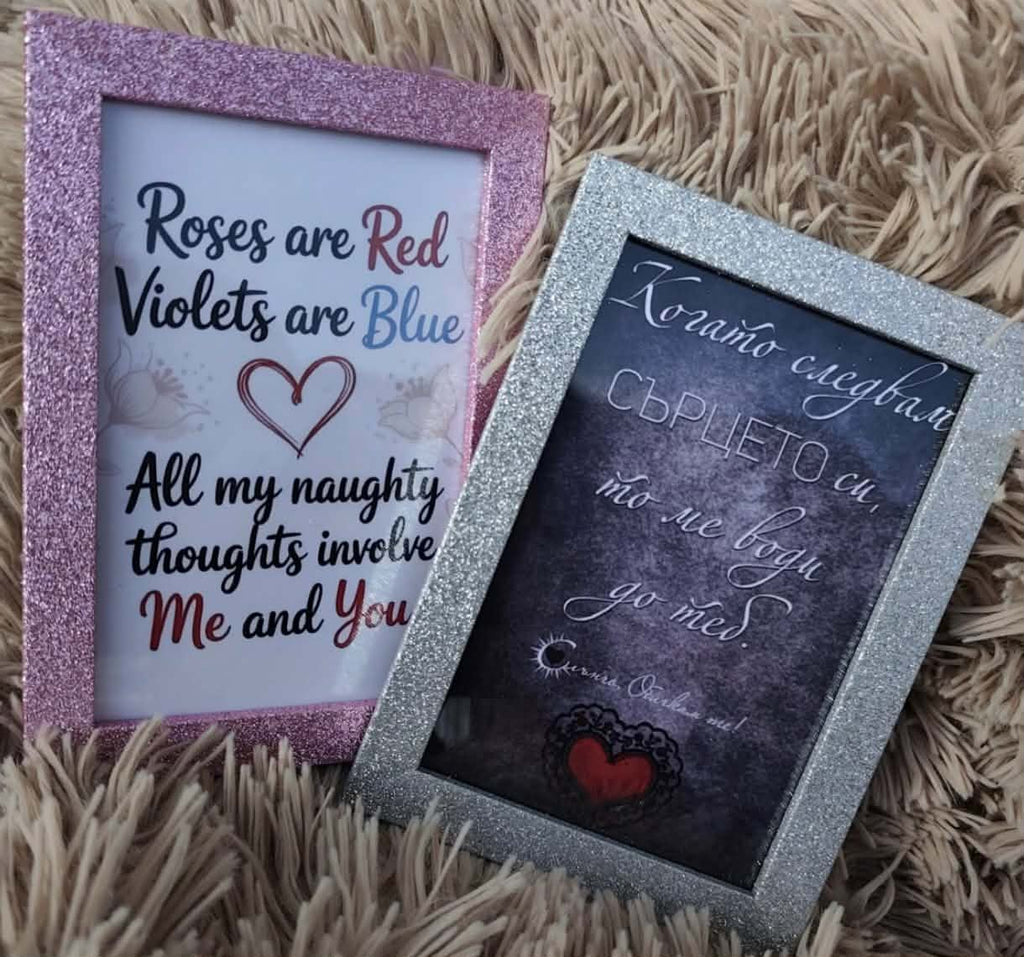 Roses are Red
Violets are Blue
All my naughty
thoughts involve
Me and You
Когато следвам
СЪРЦЕТО си,
то ме води
до теб.
Обичам те!